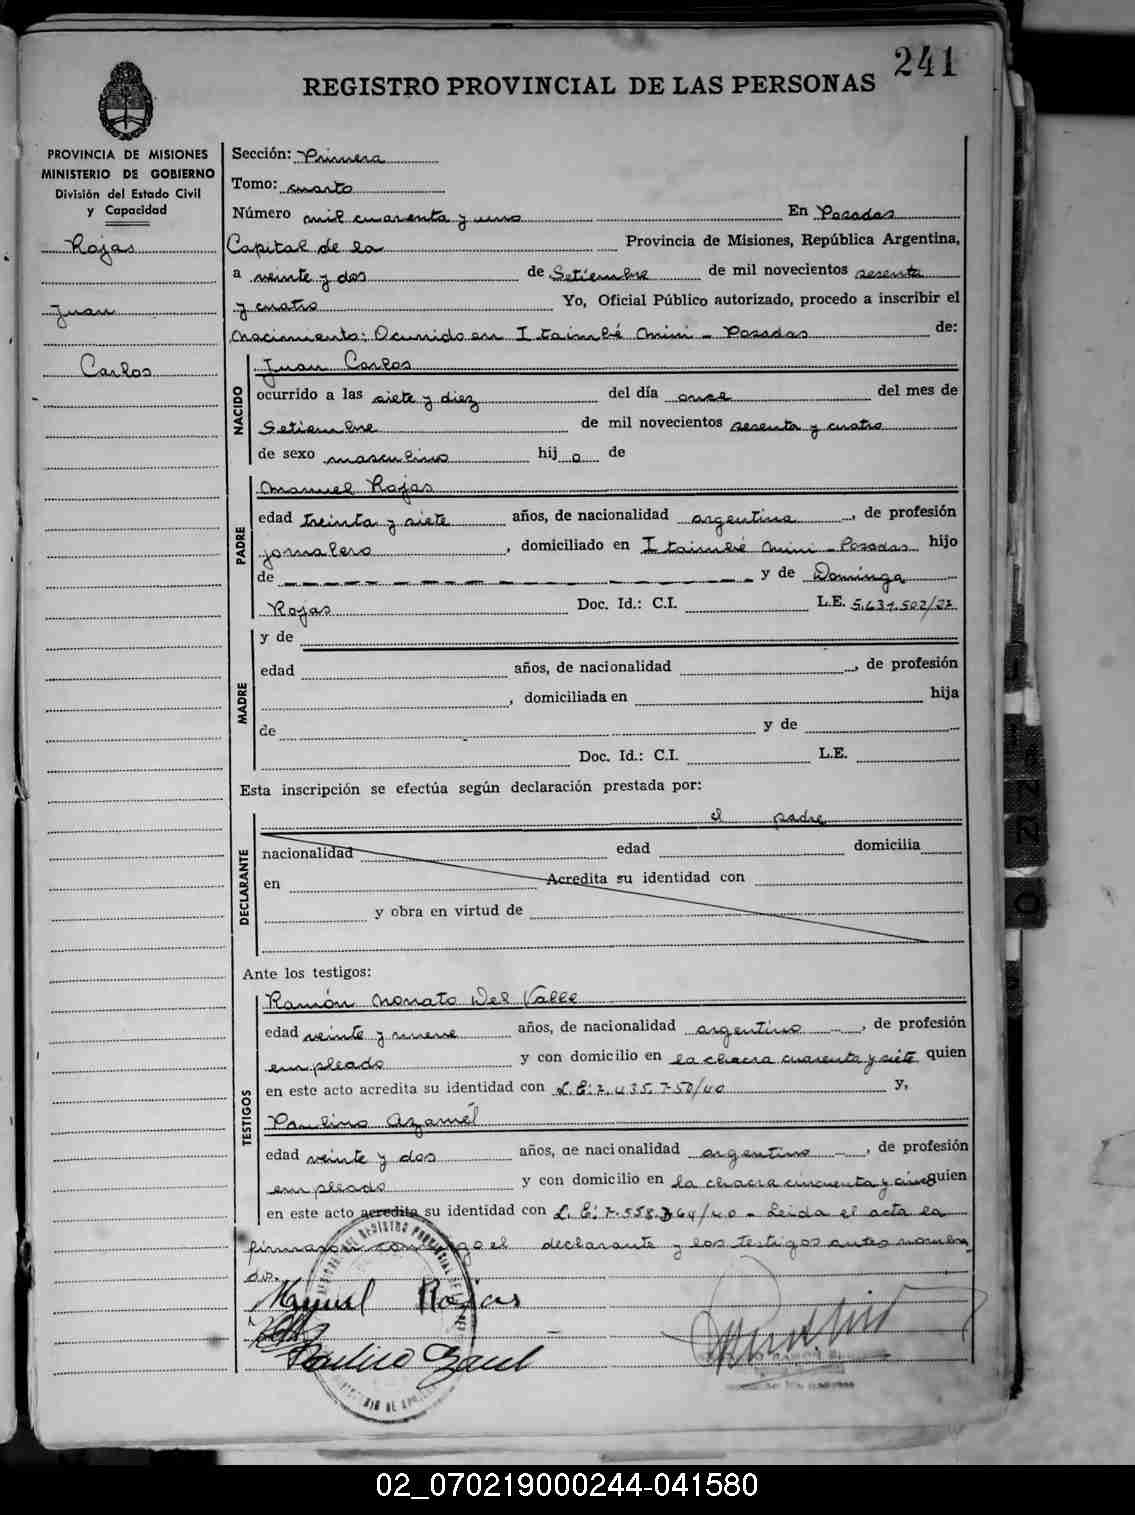 241
REGISTRO PROVINCIAL DE LAS PERSONAS
PROVINCIA DE MISIONES
MINISTERIO DE GOBIERNO
División del Estado Civil
y Capacidad
Rojas
Juan
Carlos
Sección: Primera
Tomo: cuarto
Número mil cuarenta y uno En Posadas
Capital de la Provincia de Misiones, República Argentina,
a veinte y dos de Setiembre de mil novecientos sesenta
y cuatro Yo, Oficial Público autorizado, procedo a inscribir el
Nacimiento: Ocurrido en Itaimbé Mini - Posadas de:
NACIDO
Juan Carlos
ocurrido a las siete y diez del día once del mes de
Setiembre de mil novecientos sesenta y cuatro
de sexo masculino hij o de
PADRE
Manuel Rojas
edad treinta y siete años, de nacionalidad argentina, de profesión
jornalero, domiciliado en Itaimbé Mini - Posadas hijo
de — — — — — — — — y de Dominga
Rojas Doc. Id.: C.I. L.E. 5.631.502/22
MADRE
y de
edad años, de nacionalidad, de profesión
, domiciliada en hija
de y de
Doc. Id.: C.I. L.E.
Esta inscripción se efectúa según declaración prestada por:
DECLARANTE
el padre
nacionalidad edad domicilia
en Acredita su identidad con
y obra en virtud de
Ante los testigos:
TESTIGOS
Ramón Nonato Del Valle
edad veinte y nueve años, de nacionalidad argentino -, de profesión
empleado y con domicilio en la chacra cuarenta y siete quien
en este acto acredita su identidad con L.E: 7.435.750/40 y,
Paulino Azamel
edad veinte y dos años, de nacionalidad argentino -, de profesión
empleado y con domicilio en la chacra cincuenta y cinco quien
en este acto acredita su identidad con L.E: 7.558.364/40 - Leida el acta la
firmaron conmigo el declarante y los testigos antes nombra
dos.
Manuel Rojas
02_070219000244-041580